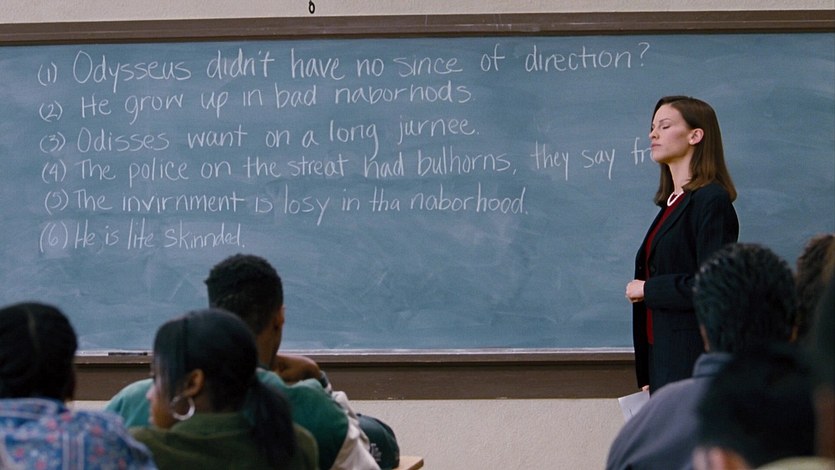 (1) Odysseus didn't have no since of direction?
(2) He grow up in bad naborhods.
(3) Odisses want on a long jurnee.
(4) The police on the streat had bulhorns, they say
(5) The invirnment is losy in tha naborhood.
(6) He is lite skinnded.